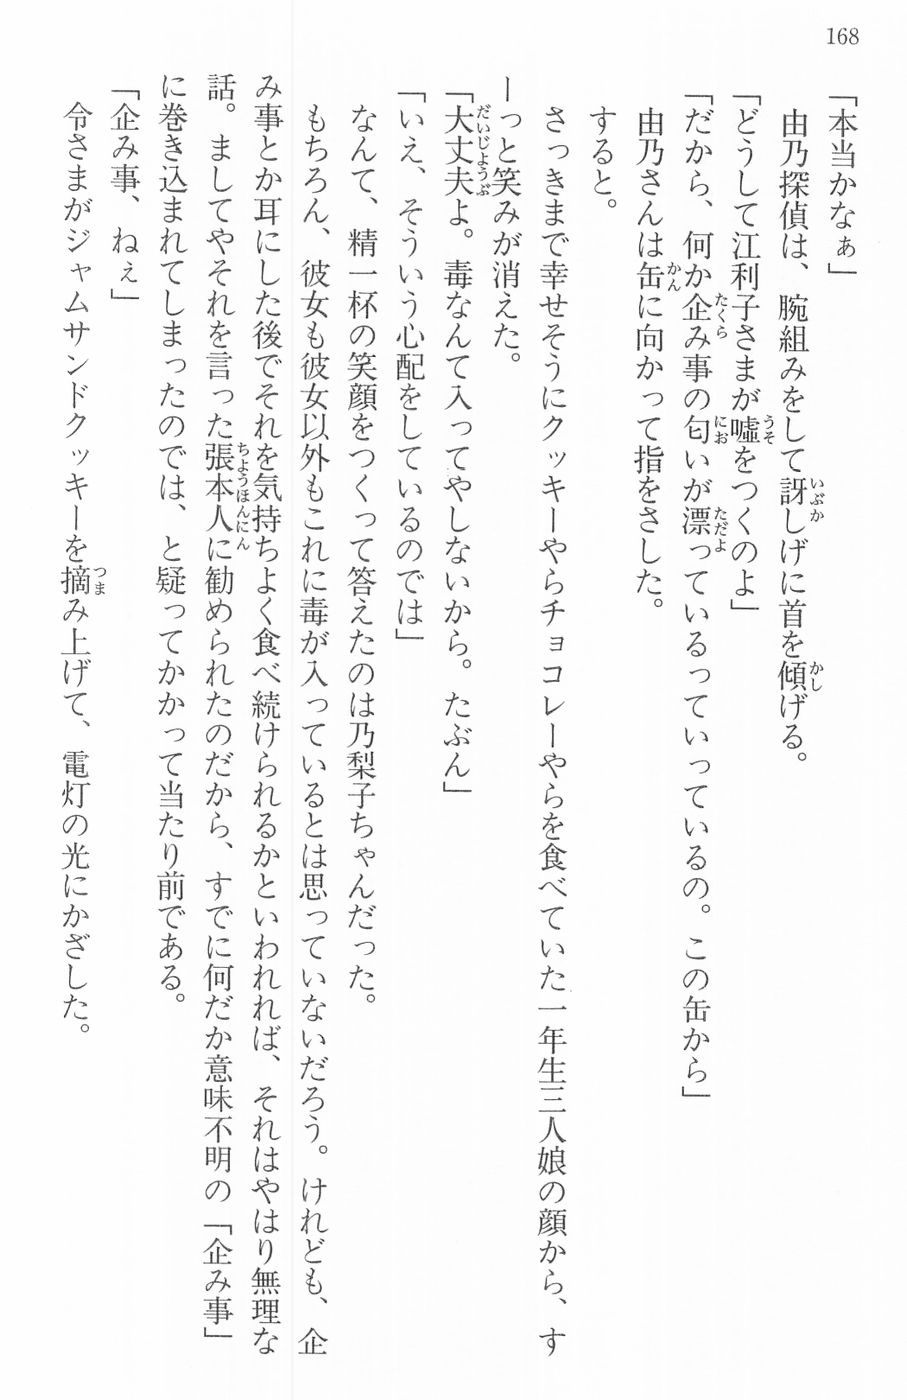 168
「本当かなぁ」
由乃探偵は、腕組みをして訝しげに首を傾げる。
「どうして江利子さまが嘘をつくのよ」
「だから、何か企み事の匂いが漂っているっていっているの。この缶から」
由乃さんは缶に向かって指をさした。
すると。
さっきまで幸せそうにクッキーやらチョコレーやらを食べていた一年生三人娘の顔から、す
ーっと笑みが消えた。
「大丈夫よ。毒なんて入ってやしないから。たぶん」
「いえ、そういう心配をしているのでは」
なんて、精一杯の笑顔をつくって答えたのは乃梨子ちゃんだった。
もちろん、彼女も彼女以外もこれに毒が入っているとは思っていないだろう。けれども、企
み事とか耳にした後でそれを気持ちよく食べ続けられるかといわれれば、それはやはり無理な
話。ましてやそれを言った張本人に勧められたのだから、すでに何だか意味不明の「企み事」
に巻き込まれてしまったのでは、と疑ってかかって当たり前である。
「企み事、ねぇ」
令さまがジャムサンドクッキーを摘み上げて、電灯の光にかざした。